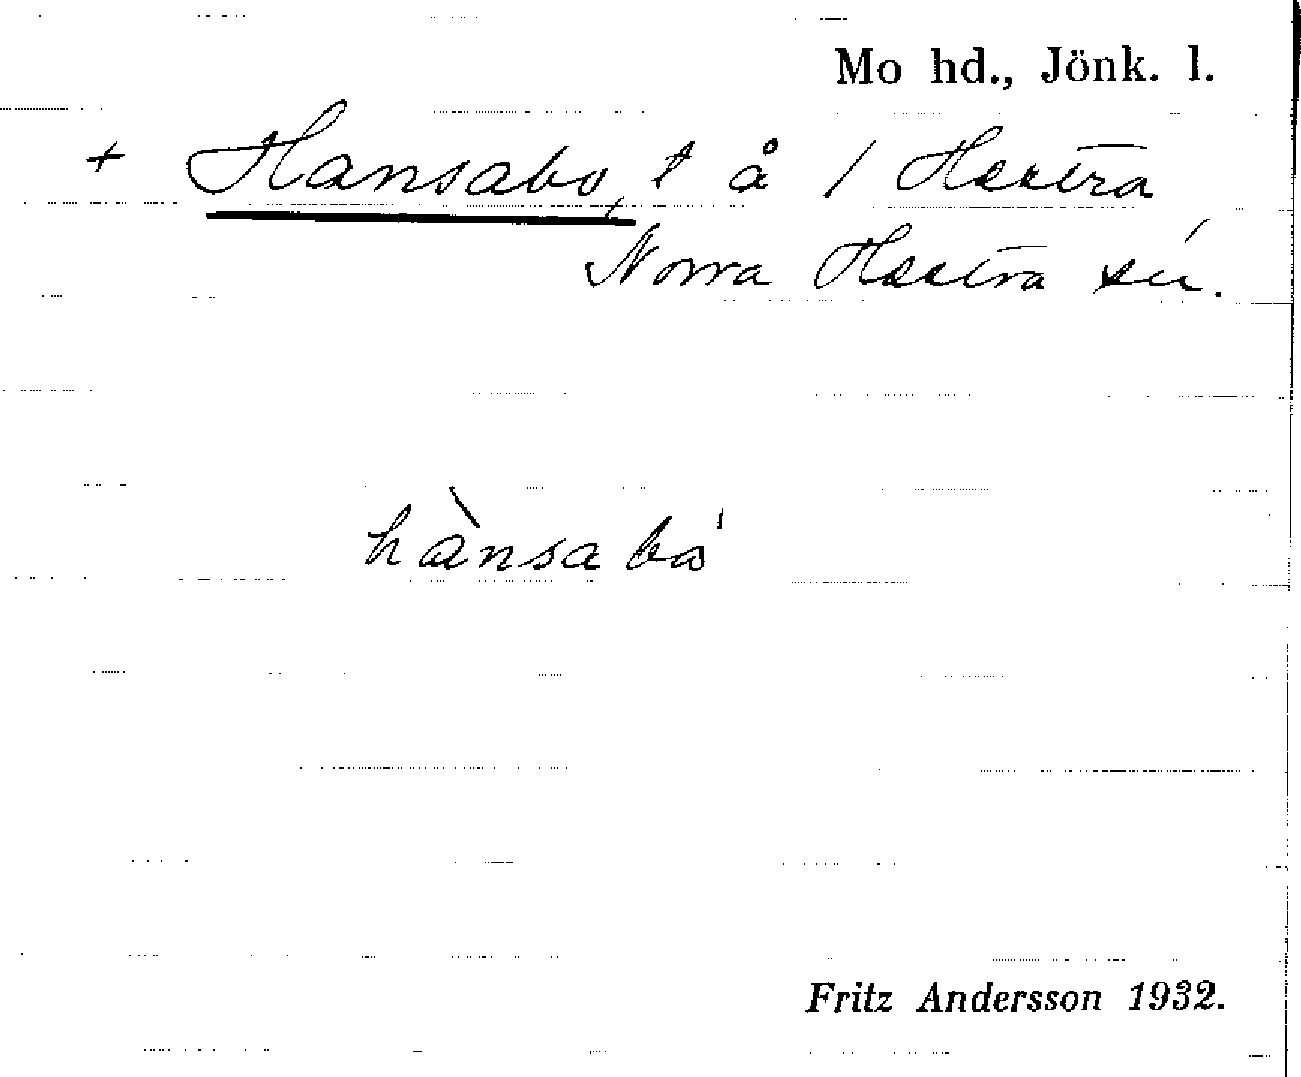 Mo hd., Jönk. l.
+ Hansabo, t å / Hestra
Norra Hestra sn.
hànsabo'
Fritz Andersson 1932.